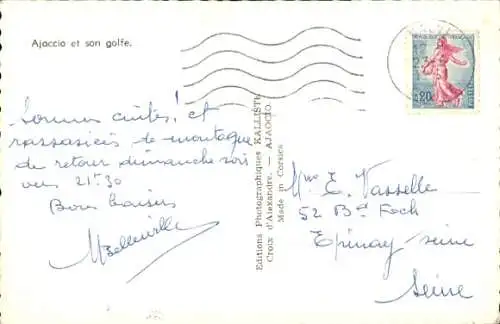 Ajaccio et son golfe.
Sommes cuites! et
rassasiées de montagne
de retour dimanche soir
vers 21h30
Bons baisers
Editions Photographiques KALLISTE
Croix d'Alexandre. — AJACCIO.
Made in Corsica
REPUBLIQUE FRANÇAISE
0,20
POSTES
Mme E. Vasselle
52 Bd Foch
Epinay-seine
Seine